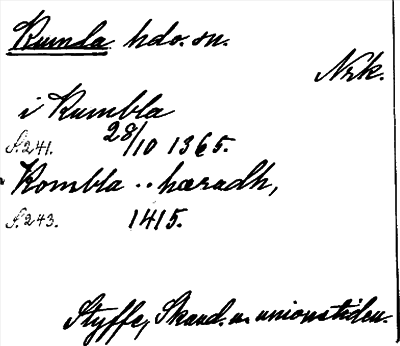 Kumla hds. sn.
Nrk.
i Kumbla
S. 241. 28/10 1365.
Kombla .. hæradh,
S. 243. 1415.
Styffe, Skand. u. unionstiden.